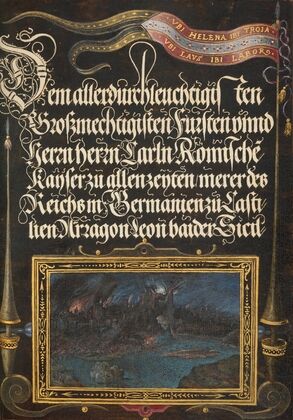 VBI HELENA IBI TROIA.
VBI LAVS IBI LABOR.
Dem allerdurchleuchtigisten
Großmechtigisten Fürsten vnnd
Herrn herrn Carln Römische
Kayser zu allen zeyten merer des
Reichs in Germanien zu Casti
lien Arragon Leon baider Sicil